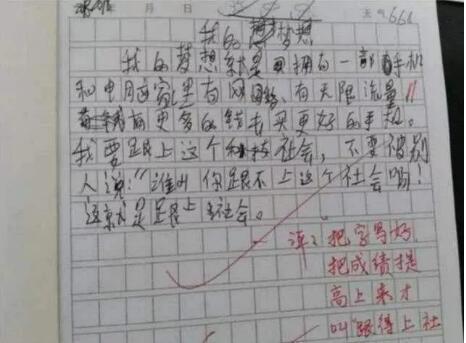 年 月 日 天气 666
我的梦想
我的梦想就是拥有一部手机
和电脑家里有网络,有无限流量,
有更多的钱去买更好的手机。
我要跟上这个社会,不要被别
人说:"谁叫你跟不上这个社会呐!
这就是跟上社会。
评:把字写好,
把成绩提
高上来才
叫"跟得上社